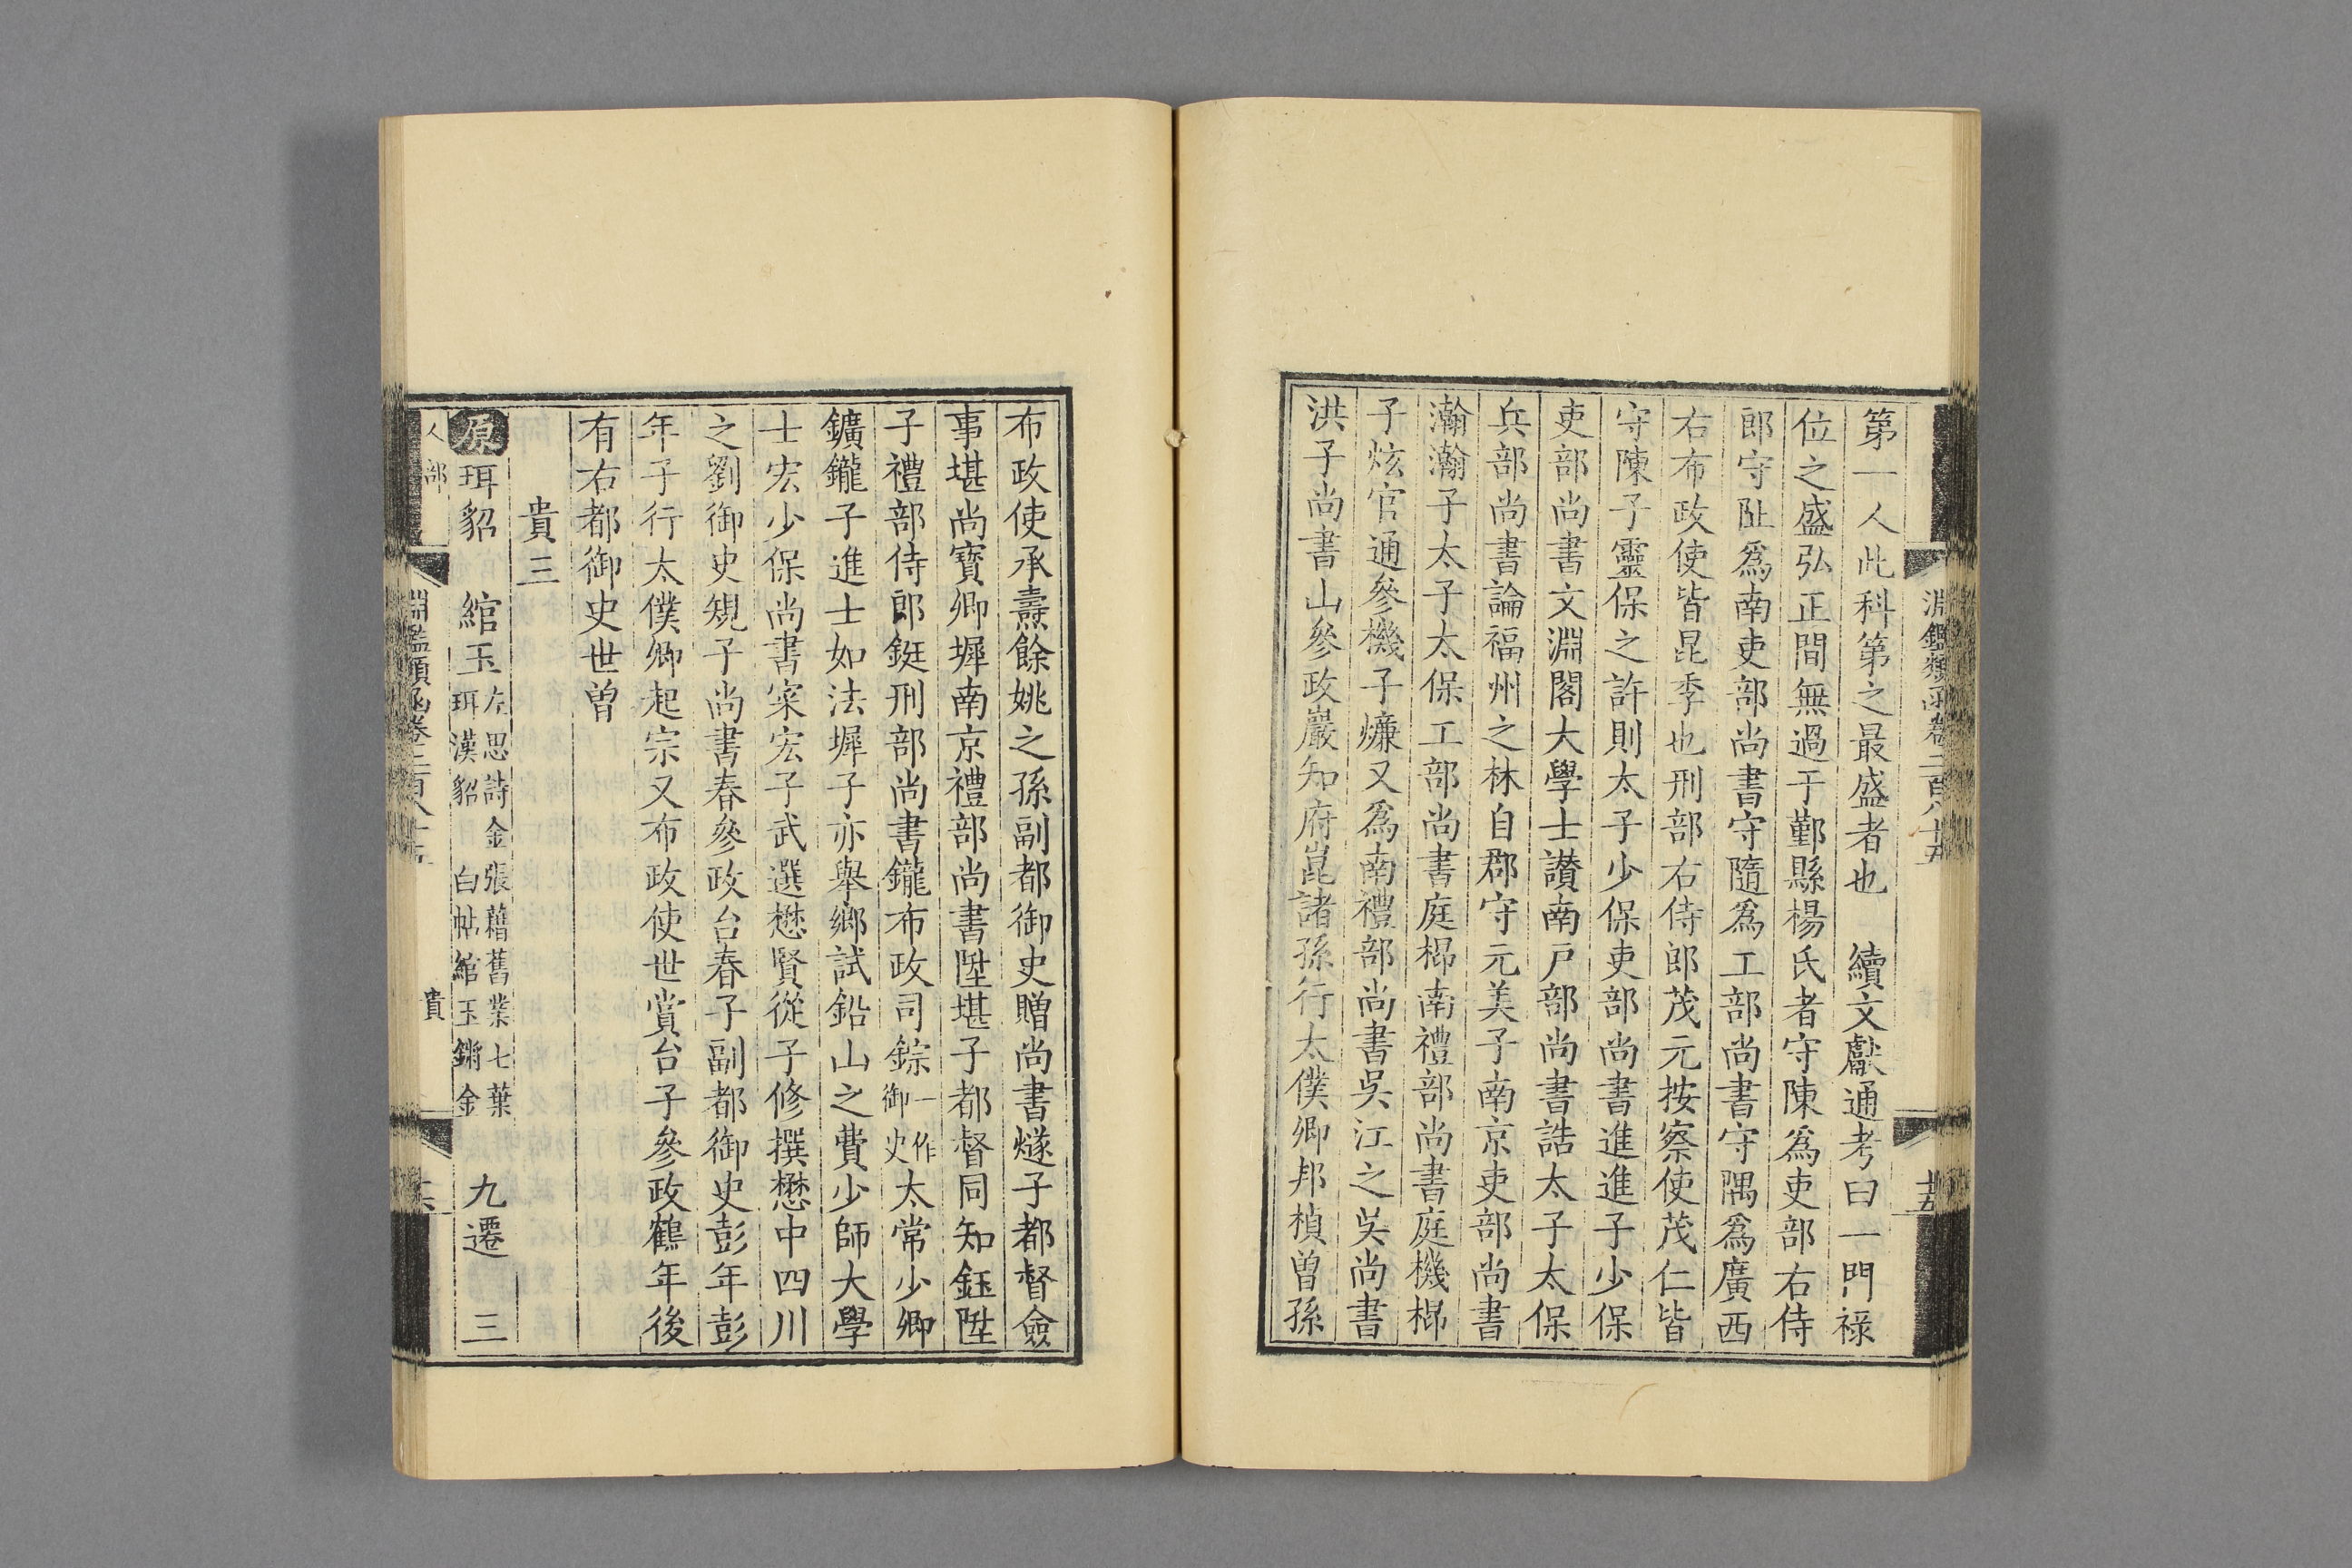 淵鑑類函卷二百八十五
十五
第一人此科第之最盛者也　續文獻通考曰一門祿
位之盛弘正間無過于鄞縣楊氏者守陳爲吏部右侍
郎守阯爲南吏部尚書守隨爲工部尚書守隅爲廣西
右布政使皆昆季也刑部右侍郎茂元按察使茂仁皆
守陳子靈保之許則太子少保吏部尚書進進子少保
吏部尚書文淵閣大學士讃南戸部尚書誥太子太保
兵部尚書論福州之林自郡守元美子南京吏部尚書
瀚瀚子太子太保工部尚書庭㭿南禮部尚書庭機㭿
子炫官通參機子燫又爲南禮部尚書吳江之吳尚書
洪子尚書山參政巖知府崑諸孫行太僕卿邦楨曽孫
布政使承燾餘姚之孫副都御史贈尚書燧子都督僉
事堪尚寶卿墀南京禮部尚書陞堪子都督同知鈺陞
子禮部侍郎鋌刑部尚書鑨布政司錝一作御史太常少卿
鑛鑨子進士如法墀子亦舉鄉試鉛山之費少師大學
士宏少保尚書寀宏子武選懋賢從子修撰懋中四川
之劉御史規子尚書春參政台春子副都御史彭年彭
年子行太僕卿起宗又布政使世賞台子參政鶴年後
有右都御史世曽
貴三
原 珥貂　綰玉左思詩金張藉舊業七葉珥漢貂　白帖綰玉鏘金　九遷　三
人部
淵鑑類函卷二百八十五
貴
十六